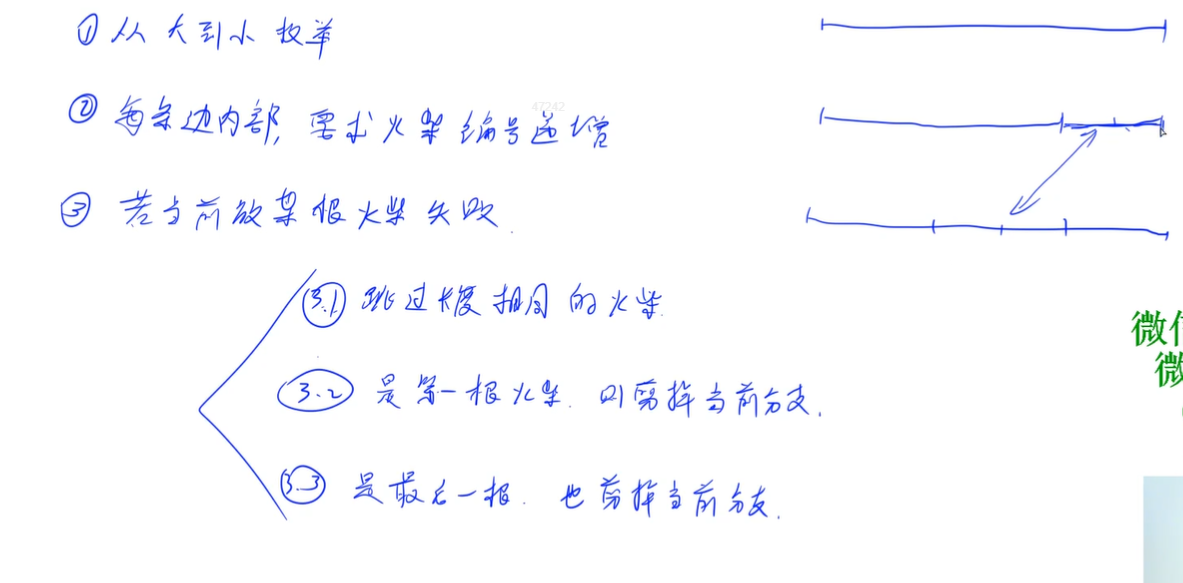 ① 从大到小枚举
② 每条边内部, 要求火柴编号递增
47242
③ 若当前放某根火柴失败.
3.1 跳过长度相同的火柴.
3.2 是第一根火柴. 则剪掉当前分支.
3.3 是最后一根. 也剪掉当前分支.
微信
微